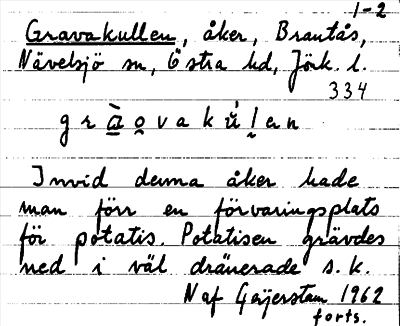 1-2
Gravakullen, åker, Brantås,
Nävelsjö sn, Östra hd, Jönk. l.
334
grà̲o̲vakúl̰en
Invid denna åker hade
man förr en förvaringsplats
för potatis. Potatisen grävdes
ned i väl dränerade s.k.
N af Geijerstam 1962
forts.